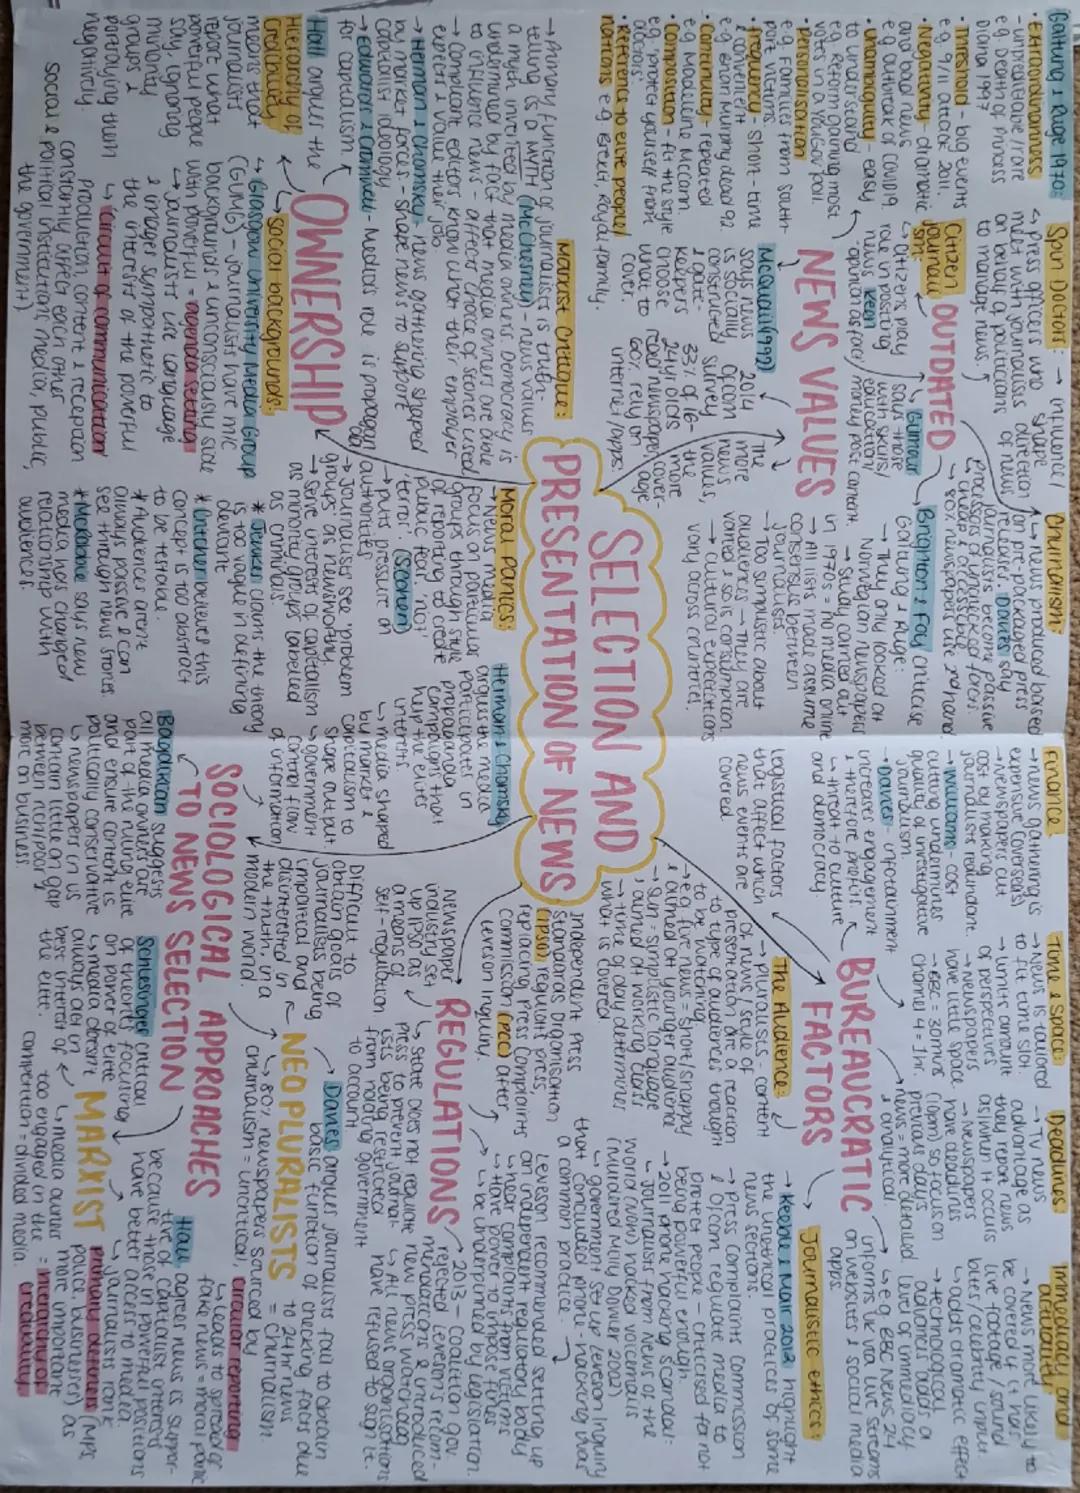 SELECTION AND
PRESENTATION OF NEWS
Galtung & Ruge 1970:
• Extraordinariness
- unpredictable/rare
e.g. Death of Princess
Diana 1997
• Threshold - big events
e.g. 9/11 attack 2011.
• Negativity - dramatic
and bad news
e.g outbreak of COVID19.
• Unambiguity - easy
to understand
e.g Reform gaining most
votes in a YouGov poll.
• Personalisation
• Frequency - short-time
& convenient
• Continuity - repeated
e.g Madeline McCann.
• Composition - fit the style
e.g. protect yourself from
• Reference to elite people/
nations e.g Brexit, Royal family.
Spin Doctors: → influence/shape
↳ press officers who
meet with journalists
on behalf of politicians
to manage news
direction of news
Citizen journalism:
↳ citizens play
role in posting
news
OUTDATED
Keen
'opinion as fact'
Gumar
says those
with skills/
education/
money post content
Churnalism:
↳ news produced based
on pre-packaged press
releases. Davies say
journalists become passive
processors of unchecked facts.
→ cheap & accessible.
→ 80% newspapers use 2nd hand
NEWS VALUES
McQuail (1992)
says news
is socially
constructed
& gate-
keepers
choose
what to
cover.
The more
news
values,
more
cover-
age
2014
Ofcom
survey
33% of 16-
24yr olds
read newspaper,
60% rely on
internet/apps.
Brighton & Foy criticise
Galtung & Ruge:
→ They only looked at
Norwegian newspapers
→ Study carried out
in 1970s = no media online
→ All lists made assume
consensus between
journalists.
→ Too simplistic about
audiences - They are
varied & so is consumption.
→ Cultural expectations
vary across countries.
Finance
→ news gaining is
expensive (overseas)
→ Newspaper cut
cost by making
journalists redundant.
→ Williams - cost
cutting undermines
quality of investigative
journalism.
- Davies - infotainment
increases engagement
& therefore profit
↳ threat to culture
and democracy
Time & Space:
→ News is tailored
to fit time slot
→ limits amount
of perspectives
→ Newspapers
have little space
→ BBC = 30mins
channel 4 = 1hr.
Deadlines
→ TV news
advantage as
they report news
as/when it occurs
→ Newspapers
have deadlines
(10pm) so focus on
previous days
news = more detailed
& analytical.
Immediacy and
actuality:
→ News most likely to
be covered if it has
live footage/sound
bites/celebrity input
↳ adds dramatic effect
→ technological
advances adds a
level of immediacy
↳ e.g. BBC News 24
informs UK via live streams
on websites & social media
apps.
BUREAUCRATIC
FACTORS
logistical factors
that affect which
news events are
covered
The Audience:
→ pluralists - content
of news/style of
presentation are a reaction
to type of audience thought
to be watching.
→ e.g five news = short/snappy
& aimed at younger audience
→ Sun = simplistic language
: aimed at working class
→ time of day determines
what is covered.
Journalistic ethics:
→ Keeble & Mair 2012 highlight
the unethical practices of some
news sections.
→ Press Complaints Commission
& Ofcom regulate media to
protect people - criticised for not
being powerful enough.
→ 2011 phone hacking scandal:
↳ journalists from News of the
World (NOW) hacked voicemails
(murdered Milly Dowler 2002)
↳ government set up Leveson Inquiry
that concluded phone-hacking was
a common practice.
Marxist Critique:
→ Primary function of journalists is truth-
telling is a MYTH (McChesney) - news value is
a myth invented by media owners. Democracy is
undermined by fact that media owners are able
to influence news - affect choice of stories used
→ Compliant editors know what their employer
expects & value their job.
→ Herman & Chomsky - news gathering shaped
by market forces - shape news to support
capitalist ideology
→ Edwards & Cromwell - Media's role is propaganda
for capitalism
OWNERSHIP
social backgrounds:
↳ Glasgow University Media Group
(GUMG) - journalists have m/c
backgrounds & unconsciously side
with powerful = agenda setting
→ journalists use language
& images sympathetic to
the interests of the powerful
↳ circuit of communication
Production, content & reception
constantly affect each other
(social & political institution, media, public,
the government)
Hall argues the
Hierarchy of
Credibility
means that
journalist
report what
powerful people
say, ignoring
minority
groups &
portraying them
negatively.
Moral panics:
→ News media
focus on particular
groups through style
of reporting to create
public fear, 'not
terror'. (Schonen)
→ puts pressure on
authorities
→ Journalists see problem
groups as newsworthy.
→ Serve interests of capitalism
as minority groups labelled
as criminals.
* Jewkes claims the theory
is too vague in defining
'deviant'
* Kitchener believes this
concept is too abstract
to be testable.
* Audiences aren't
always passive & can
see through news stories.
* McRobbie says new
media has changed
relationship with
audiences.
Herman & Chomsky
argues the media
participates in
propaganda
campaigns that
help the elite's
interest.
↳ media shaped
by market &
capitalism to
shape output
↳ government
control flow
of information
Independent Press
Standards Organisation
(IPSO), regulates press,
replacing Press Complaints
Commission (PCC) after
Leveson Inquiry.
REGULATIONS
Newspaper
industry set
up IPSO as
a means of
self-regulation
↳ State does not regulate
press to prevent journal-
ists being restricted
from holding government
to account
Leveson recommended setting up
an independent regulatory body
↳ hear complaints from victims
↳ Have power to impose fines
↳ be underpinned by legislation.
→ 2013 - Coalition gov.
rejected Leveson's recom-
mendations & introduced
new press watchdog
↳ All news organisations
have refused to sign it.
SOCIOLOGICAL APPROACHES
TO NEWS SELECTION
NEO PLURALISTS
Difficult to
obtain goals of
journalists being
impartial and
disinterested in
the truth, in a
modern world.
→ Davies argues journalists fail to obtain
basic function of checking facts due
to 24hr news
= churnalism.
↳ 80% newspapers sourced by
churnalism = uncritical, circular reporting
↳ leads to spread of
fake news = moral panic
MARXIST
Bagdikian suggests
all media owners are
part of the ruling elite
and ensure content is
politically conservative
↳ newspapers in US
contain little on gap
between rich/poor &
more on business.
Schlesinger critical
of theorists focusing
on power of elite
↳ media doesn't
always act in
best interest of
the elite.
↳ media owners
too engaged in the
competition = divided media.
Hall agrees news is suppor-
tive of capitalist interests
because those in powerful positions
have better access to media
↳ journalists rank
primary definers (MPs,
police, businesses) as
more important
= hierarchy of
credibility